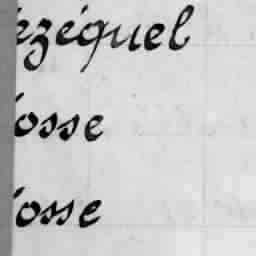 ezéquel
osse
osse